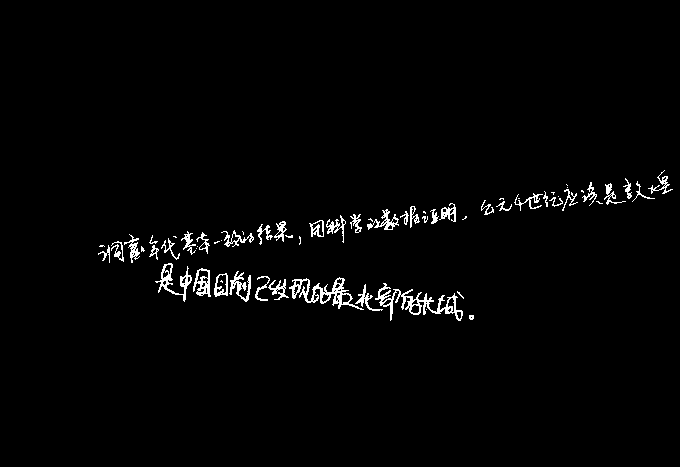 洞窟年代基本一致的结果，用科学的数据证明，公元4世纪应该是敦煌
是中国目前已发现的最北部的长城。